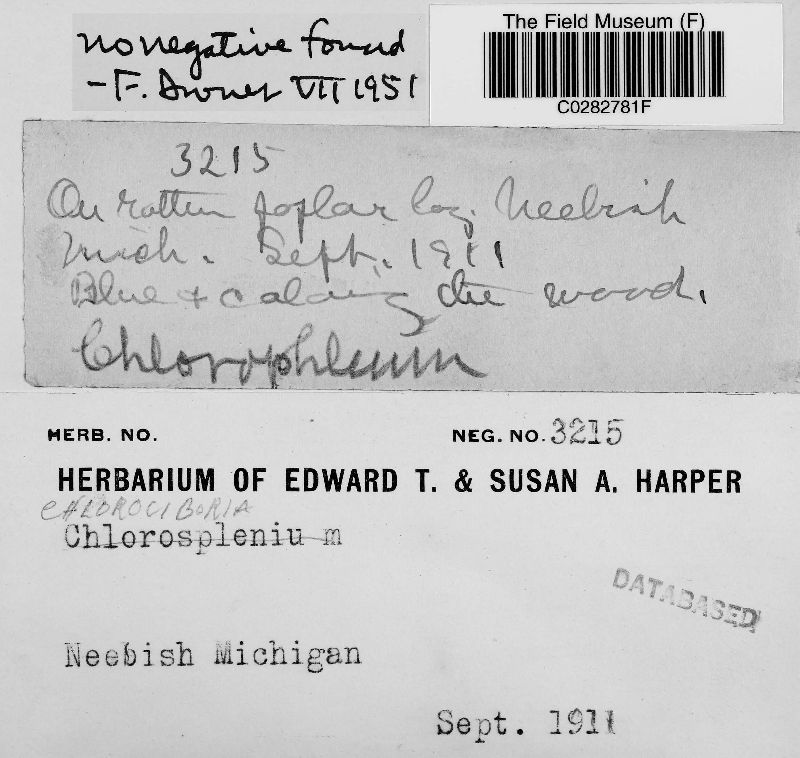 no negative found
- F. VII 1951
The Field Museum (F)
C0282781F
3215
On rotten poplar log. Neebish
Mich. Sept. 1911
Blue + coloring the wood.
Chlorophleum
HERB. NO.
NEG. NO. 3215
HERBARIUM OF EDWARD T. & SUSAN A. HARPER
CHLOROCIBORIA
Chlorosplenium
DATABASED
Neebish Michigan
Sept. 1911